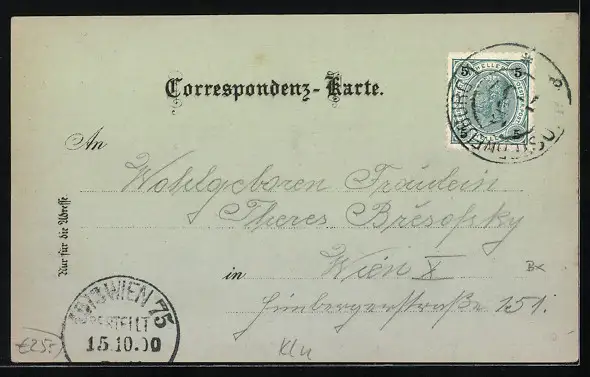 Correspondenz-Karte.
5 HELLER 5
5 5
An
Wohlgeboren Fräulein
Theres Břesofsky
in Wien X
Himbergerstraße 151.
Nur für die Adresse.
10/3 WIEN 75
BESTELLT
15.10.00
€25,-